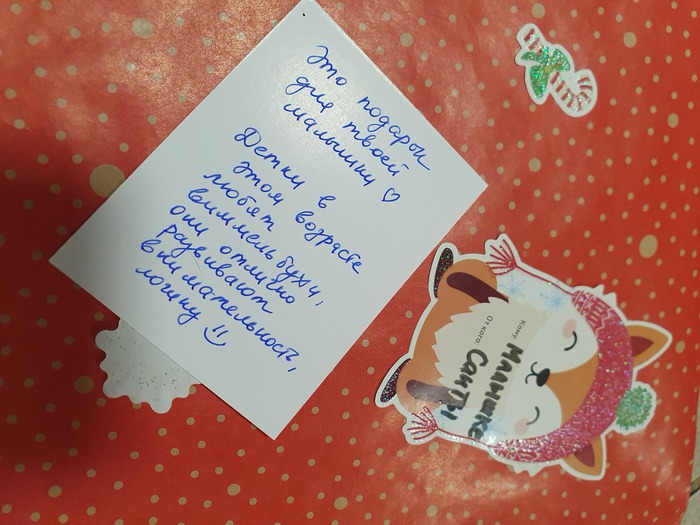 Это подарок
для твоей
малышки ♡
Детки в
этом возрасте
любят
виммельбухи,
они отлично
развивают
внимательность,
логику
Кому: Малышке
От кого: Санты